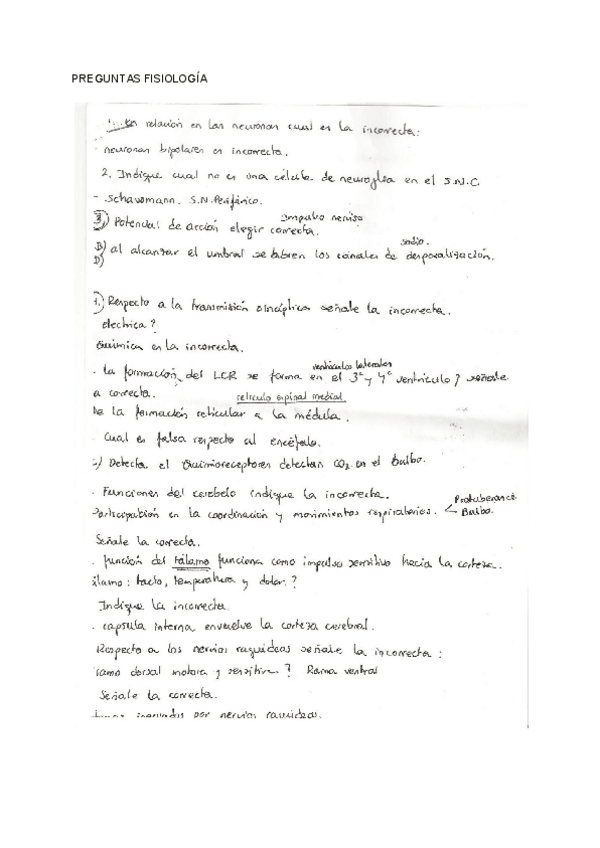 PREGUNTAS FISIOLOGÍA
1. En relación en las neuronas cual es la incorrecta:
- neuronas bipolares es incorrecta.
2. Indique cual no es una célula de neuroglia en el S.N.C
- Schawomann. S.N. Periférico.
Impulso nervioso
3) Potencial de acción elegir correcta.
sodio.
B) al alcanzar el umbral se abren los canales de desporalización.
D)
1.) Respecto a la transmisión sináptica señale la incorrecta.
electrica?
Química es la incorrecta.
ventriculos laterales
. la formación del LCR se forma en el 3º y 4º ventriculo? señale
a correcta.
reticulo espinal medial.
De la formación reticular a la médula.
Cual es falsa respecto al encéfalo.
Detecta el Quimioreceptores detectan CO2 en el Bulbo.
. Funciones del cerebelo indique la incorrecta.
Protuberancia
Participación en la coordinación y movimientos respiratorios. Bulbo.
Señale la correcta.
. función del tálamo funciona como impulso sensitivo hacia la corteza.
álamo: tacto, temperatura y dolor.?
Indique la incorrecta.
. capsula interna envuelve la corteza cerebral.
Respecto a los nervios raquideas señale la incorrecta:
ramo dorsal motora y sensitiva? Rama ventral
Señale la correcta.
por nervios raquideas.